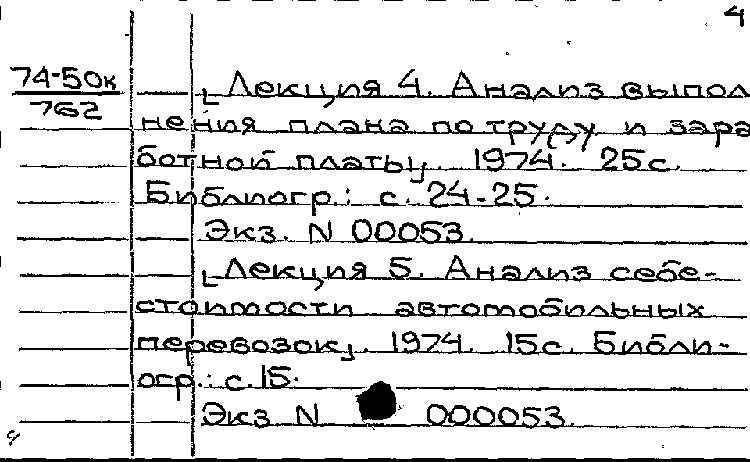 4
74-50к
762
[Лекция 4. Анализ выпол
нения плана по труду и зара
ботной платы]. 1974. 25с.
Библиогр.: с. 24-25.
Экз. N 00053.
[Лекция 5. Анализ себе-
стоимости автомобильных
перевозок]. 1974. 15с. Библи-
огр.: с.15.
Экз N 000053.